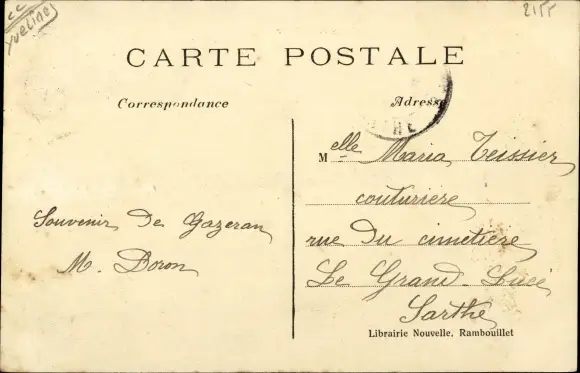 Yvelines
2155
CARTE POSTALE
Correspondance
Adresse
Melle Maria Teissier
couturière
rue du cimetière
Le Grand-Lucé
Sarthe
Souvenir De Gazeran
M. Boron
Librairie Nouvelle, Rambouillet